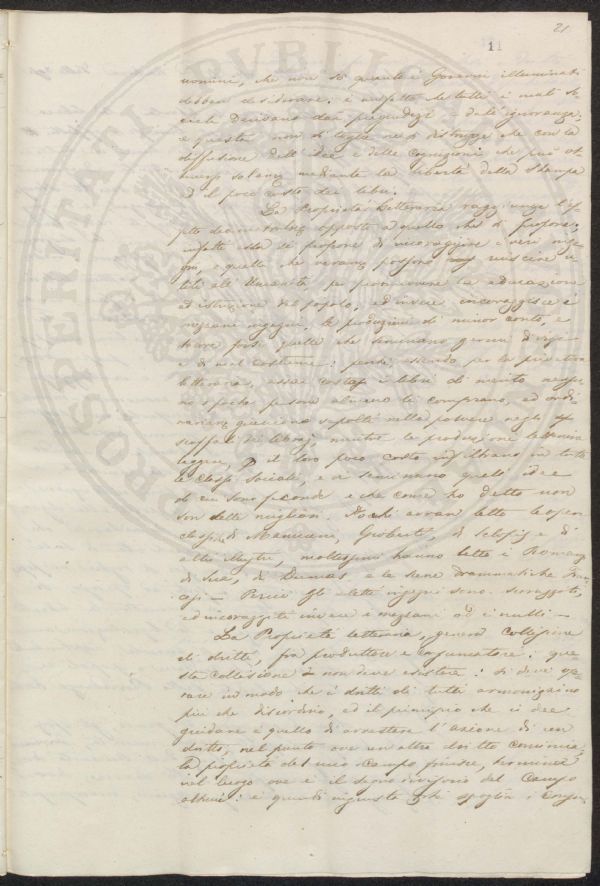 21
11
uomini, che non so quanto i Governi illuminati
debban desiderare: è un fatto che tutti i mali so-
ciali derivano dai pregiudizi e dall'ignoranza,
e questa non si toglie nè si distrugge che con la
diffusione dell'idee e delle cognizioni che può ot-
tenersi soltanto mediante la libertà della Stampa
ed il poco costo dei libri.
La Proprietà Letteraria raggiunge l'ef-
fetto diametralmente opposto a quello che si propone;
infatti essa si propone di incoraggiare i veri inge-
gni, e quelli che possono riuscire u-
tili all'Umanità, per promuovere la educazione
ed istruzione del popolo, ed invece incoraggisce i
mezzani ingegni, le produzioni di minor conto, e
forse quelle che seminano germi di vizio
e di mal costume: perchè, essendo per la privativa
letteraria, assai costosi i libri di merito nessu-
no o poche persone almeno li comprano, ed ordi-
nariamente giacciono sepolti nella polvere negli
scaffali dei libraj, mentre le produzioni
leggere, p il loro poco costo infiltrano in tutte
le classi sociali, e seminano quelle idee
di cui sono feconde e che come ho detto non
son delle migliori. Pochi avran letto le opere
di Mamiani, Gioberti, di e di
altri Illustri, moltissimi hanno letto i Romanzi
di Sue, di Dumas e le scene drammatiche Fran-
cesi — Perciò gli eletti ingegni sono
ed incoraggiti invece i mezzani od i nulli —
La Proprietà letteraria, genera collisione
di dritti, fra produttore e consumatore: que-
sta collisione non deve esistere: si deve ope-
rare in modo che i dritti di tutti armonizzino
più che discordino, ed il principio che ci dee
guidare è quello di arrestare l'azione di un
diritto, nel punto ove un altro diritto comincia:
la proprietà del mio campo finisce, termina
nel luogo ove è il segno divisorio del Campo
altrui: è quindi ingiusto che